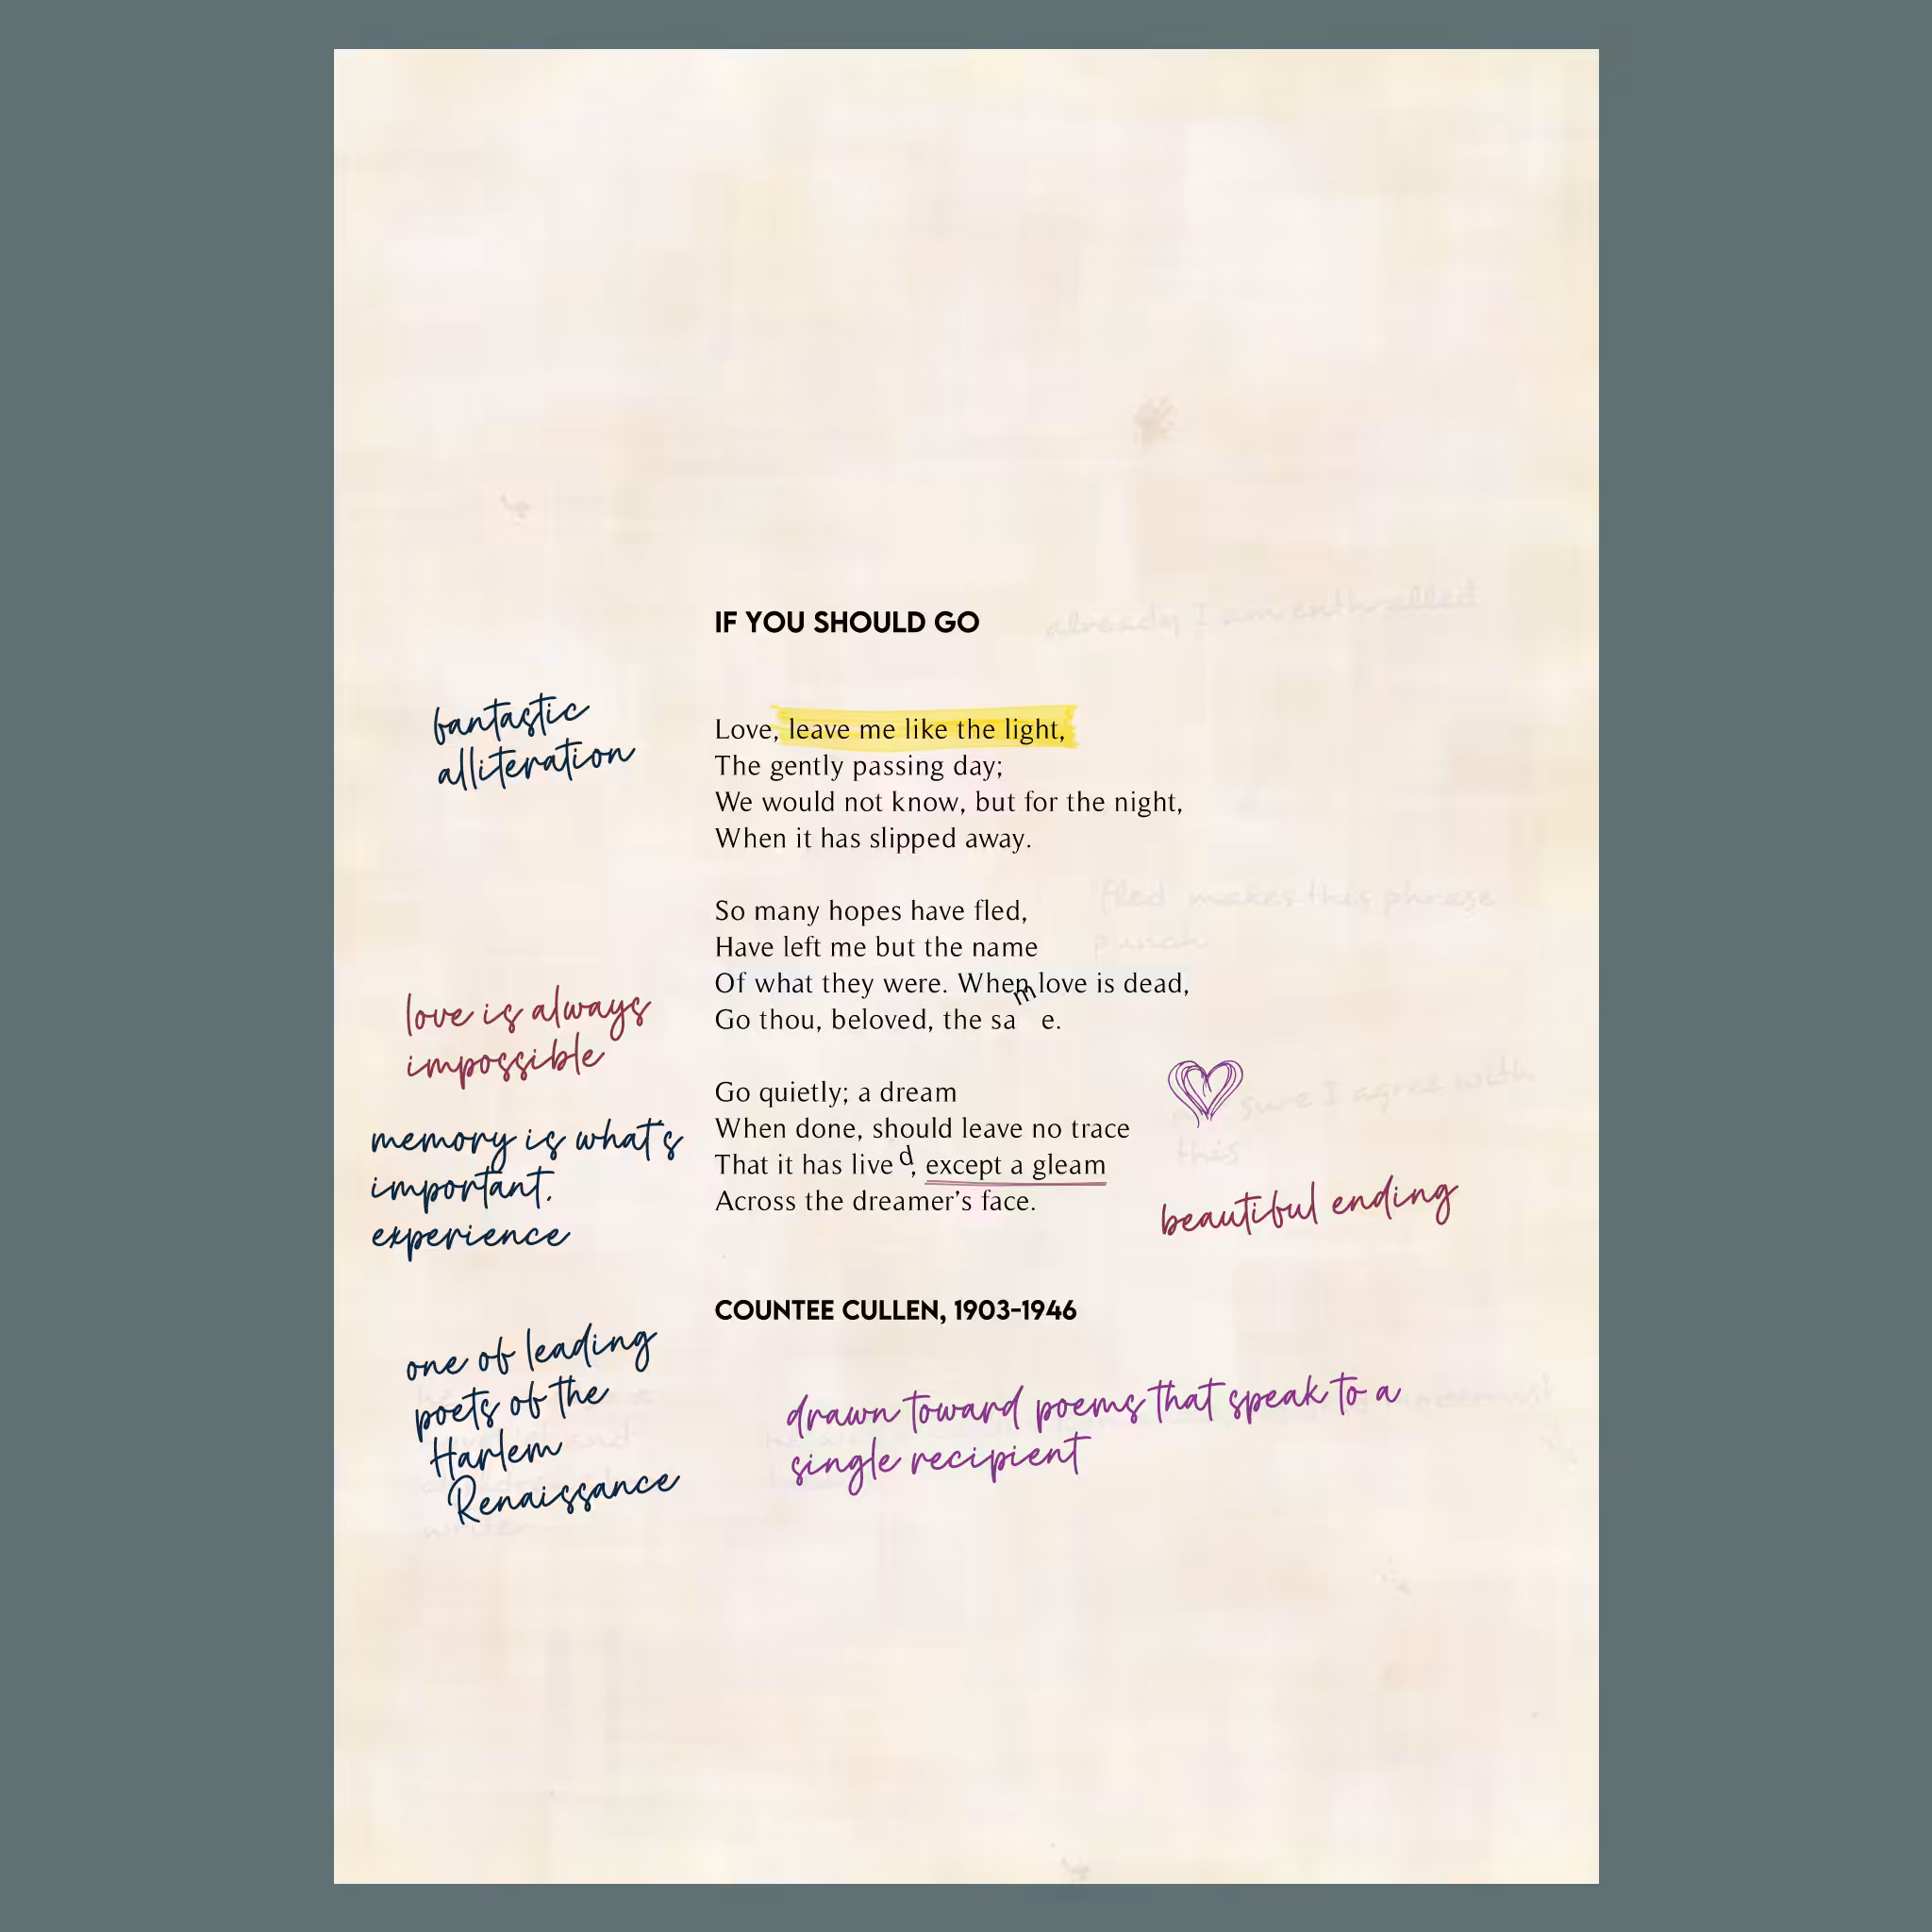 IF YOU SHOULD GO
already I am enthralled
fantastic
alliteration
Love, leave me like the light,
The gently passing day;
We would not know, but for the night,
When it has slipped away.
So many hopes have fled,
Have left me but the name
Of what they were. When love is dead,
Go thou, beloved, the same.
"fled" makes this phrase
punch
love is always
impossible
Go quietly; a dream
When done, should leave no trace
That it has lived, except a gleam
Across the dreamer's face.
sure I agree with
this
memory is what's
important.
experience
beautiful ending
COUNTEE CULLEN, 1903-1946
one of leading
poets of the
Harlem
Renaissance
and
writer
drawn toward poems that speak to a
single recipient